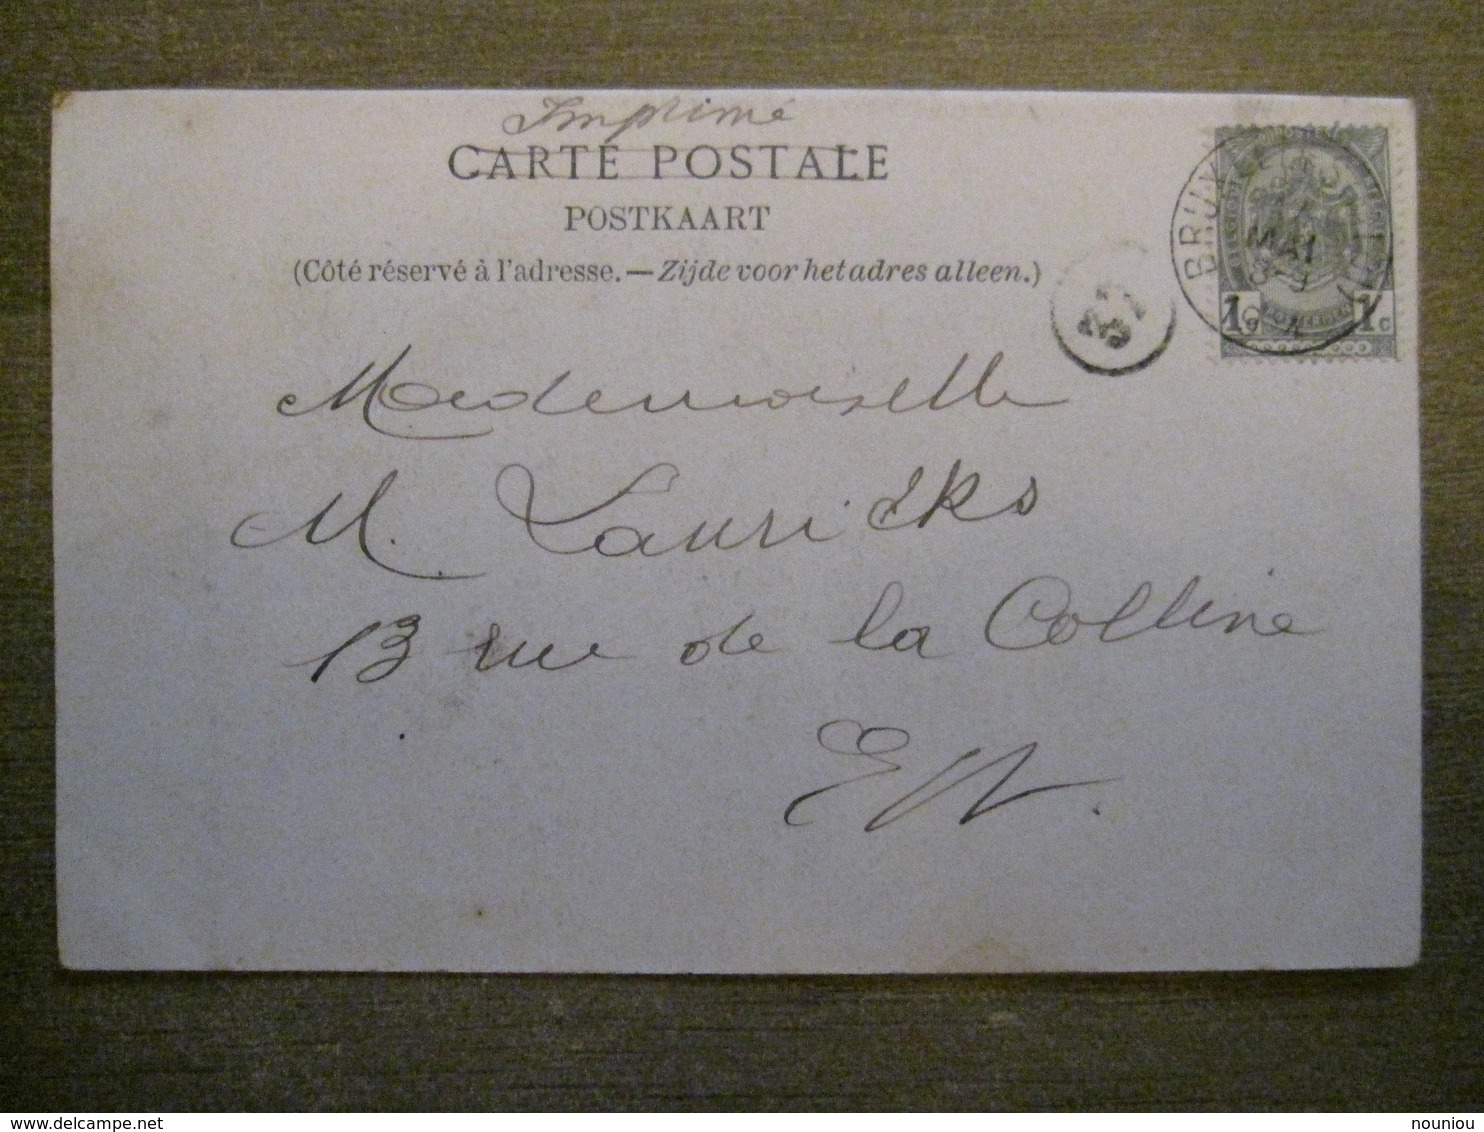 Imprimé
CARTE POSTALE
POSTKAART
(Côté réservé à l'adresse. — Zijde voor het adres alleen.)
MAI
1c 1c
Mademoiselle
M. Lauricks
13 rue de la Colline
E/V.
nouniou